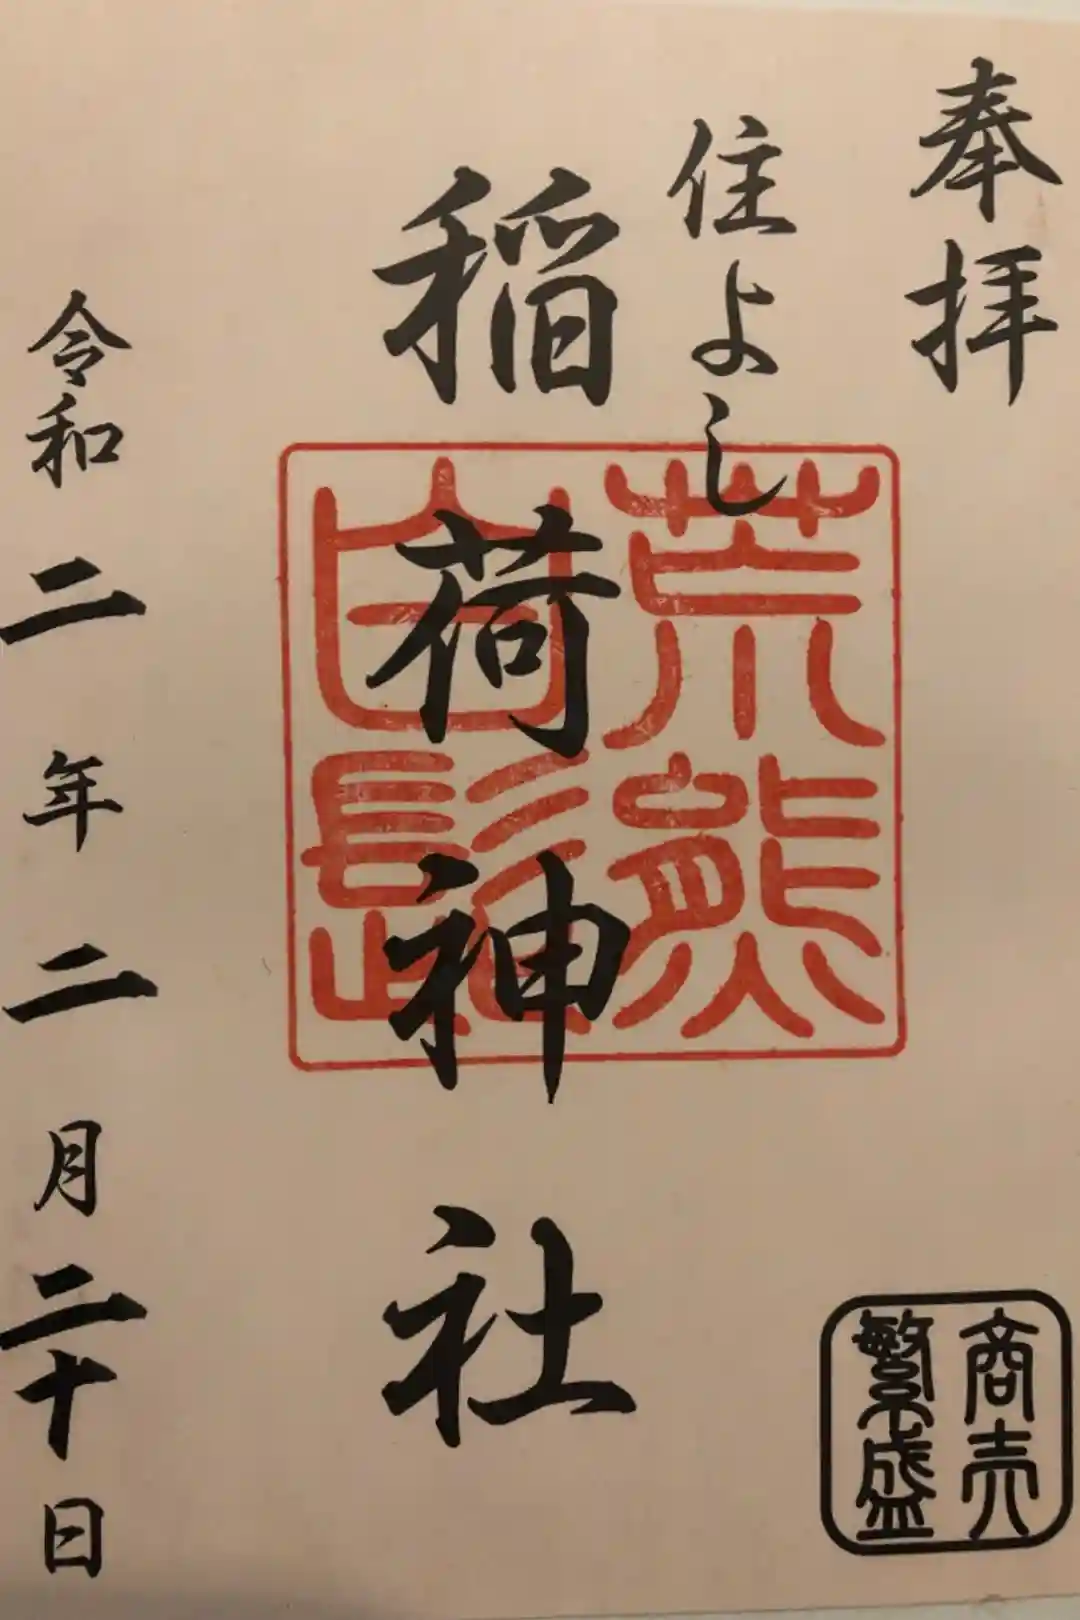 奉拝
住よし
稲荷神社
荒熊
白髭
令和二年二月二十日
商売
繁盛